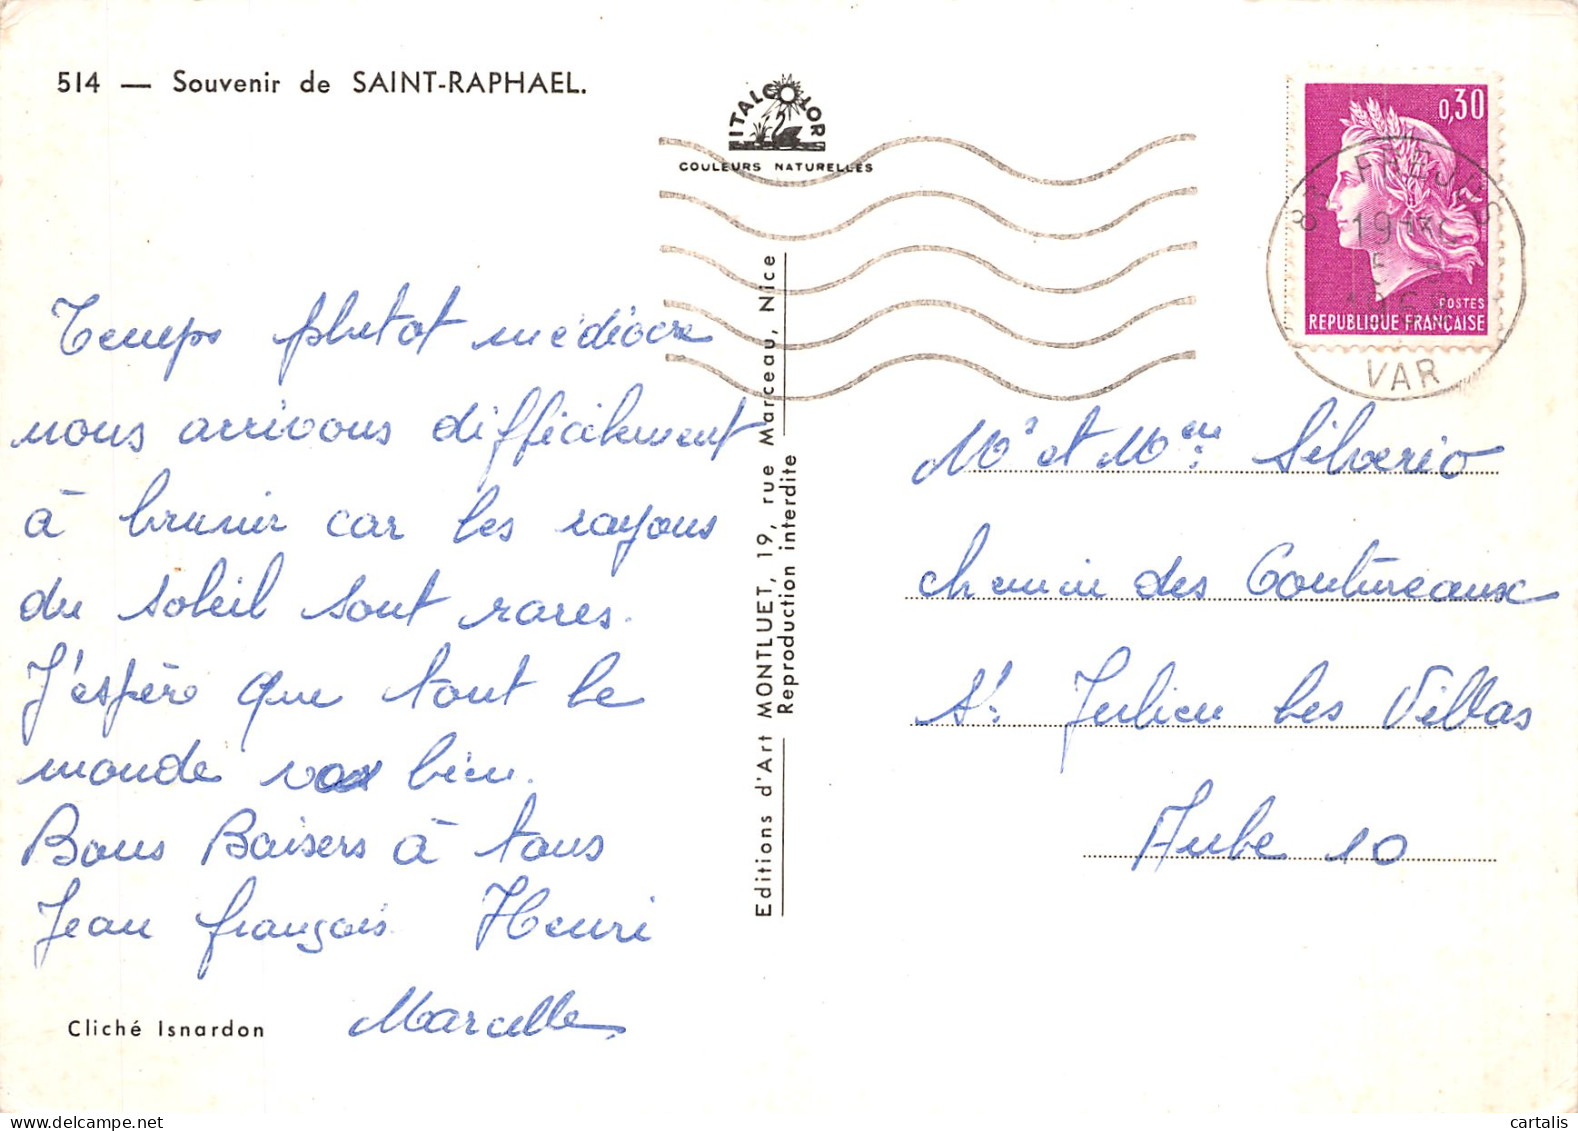 514 — Souvenir de SAINT-RAPHAEL.
ITALCOLOR
COULEURS NATURELLES
0,30
POSTES
REPUBLIQUE FRANÇAISE
83 FREJUS
VAR
Temps plutot médiocre
nous arrivons difficilement
à brunir car les rayons
du soleil sont rares.
J'espère que tout le
monde va bien.
Bons Baisers à tous
Jean françois Henri
Marcelle
Cliché Isnardon
Editions d'Art MONTLUET, 19, rue Marceau, Nice
Reproduction interdite
Mr et Mme Silverio
chemin des Coutureaux
St Julien les Villas
Aube 10
cartalis